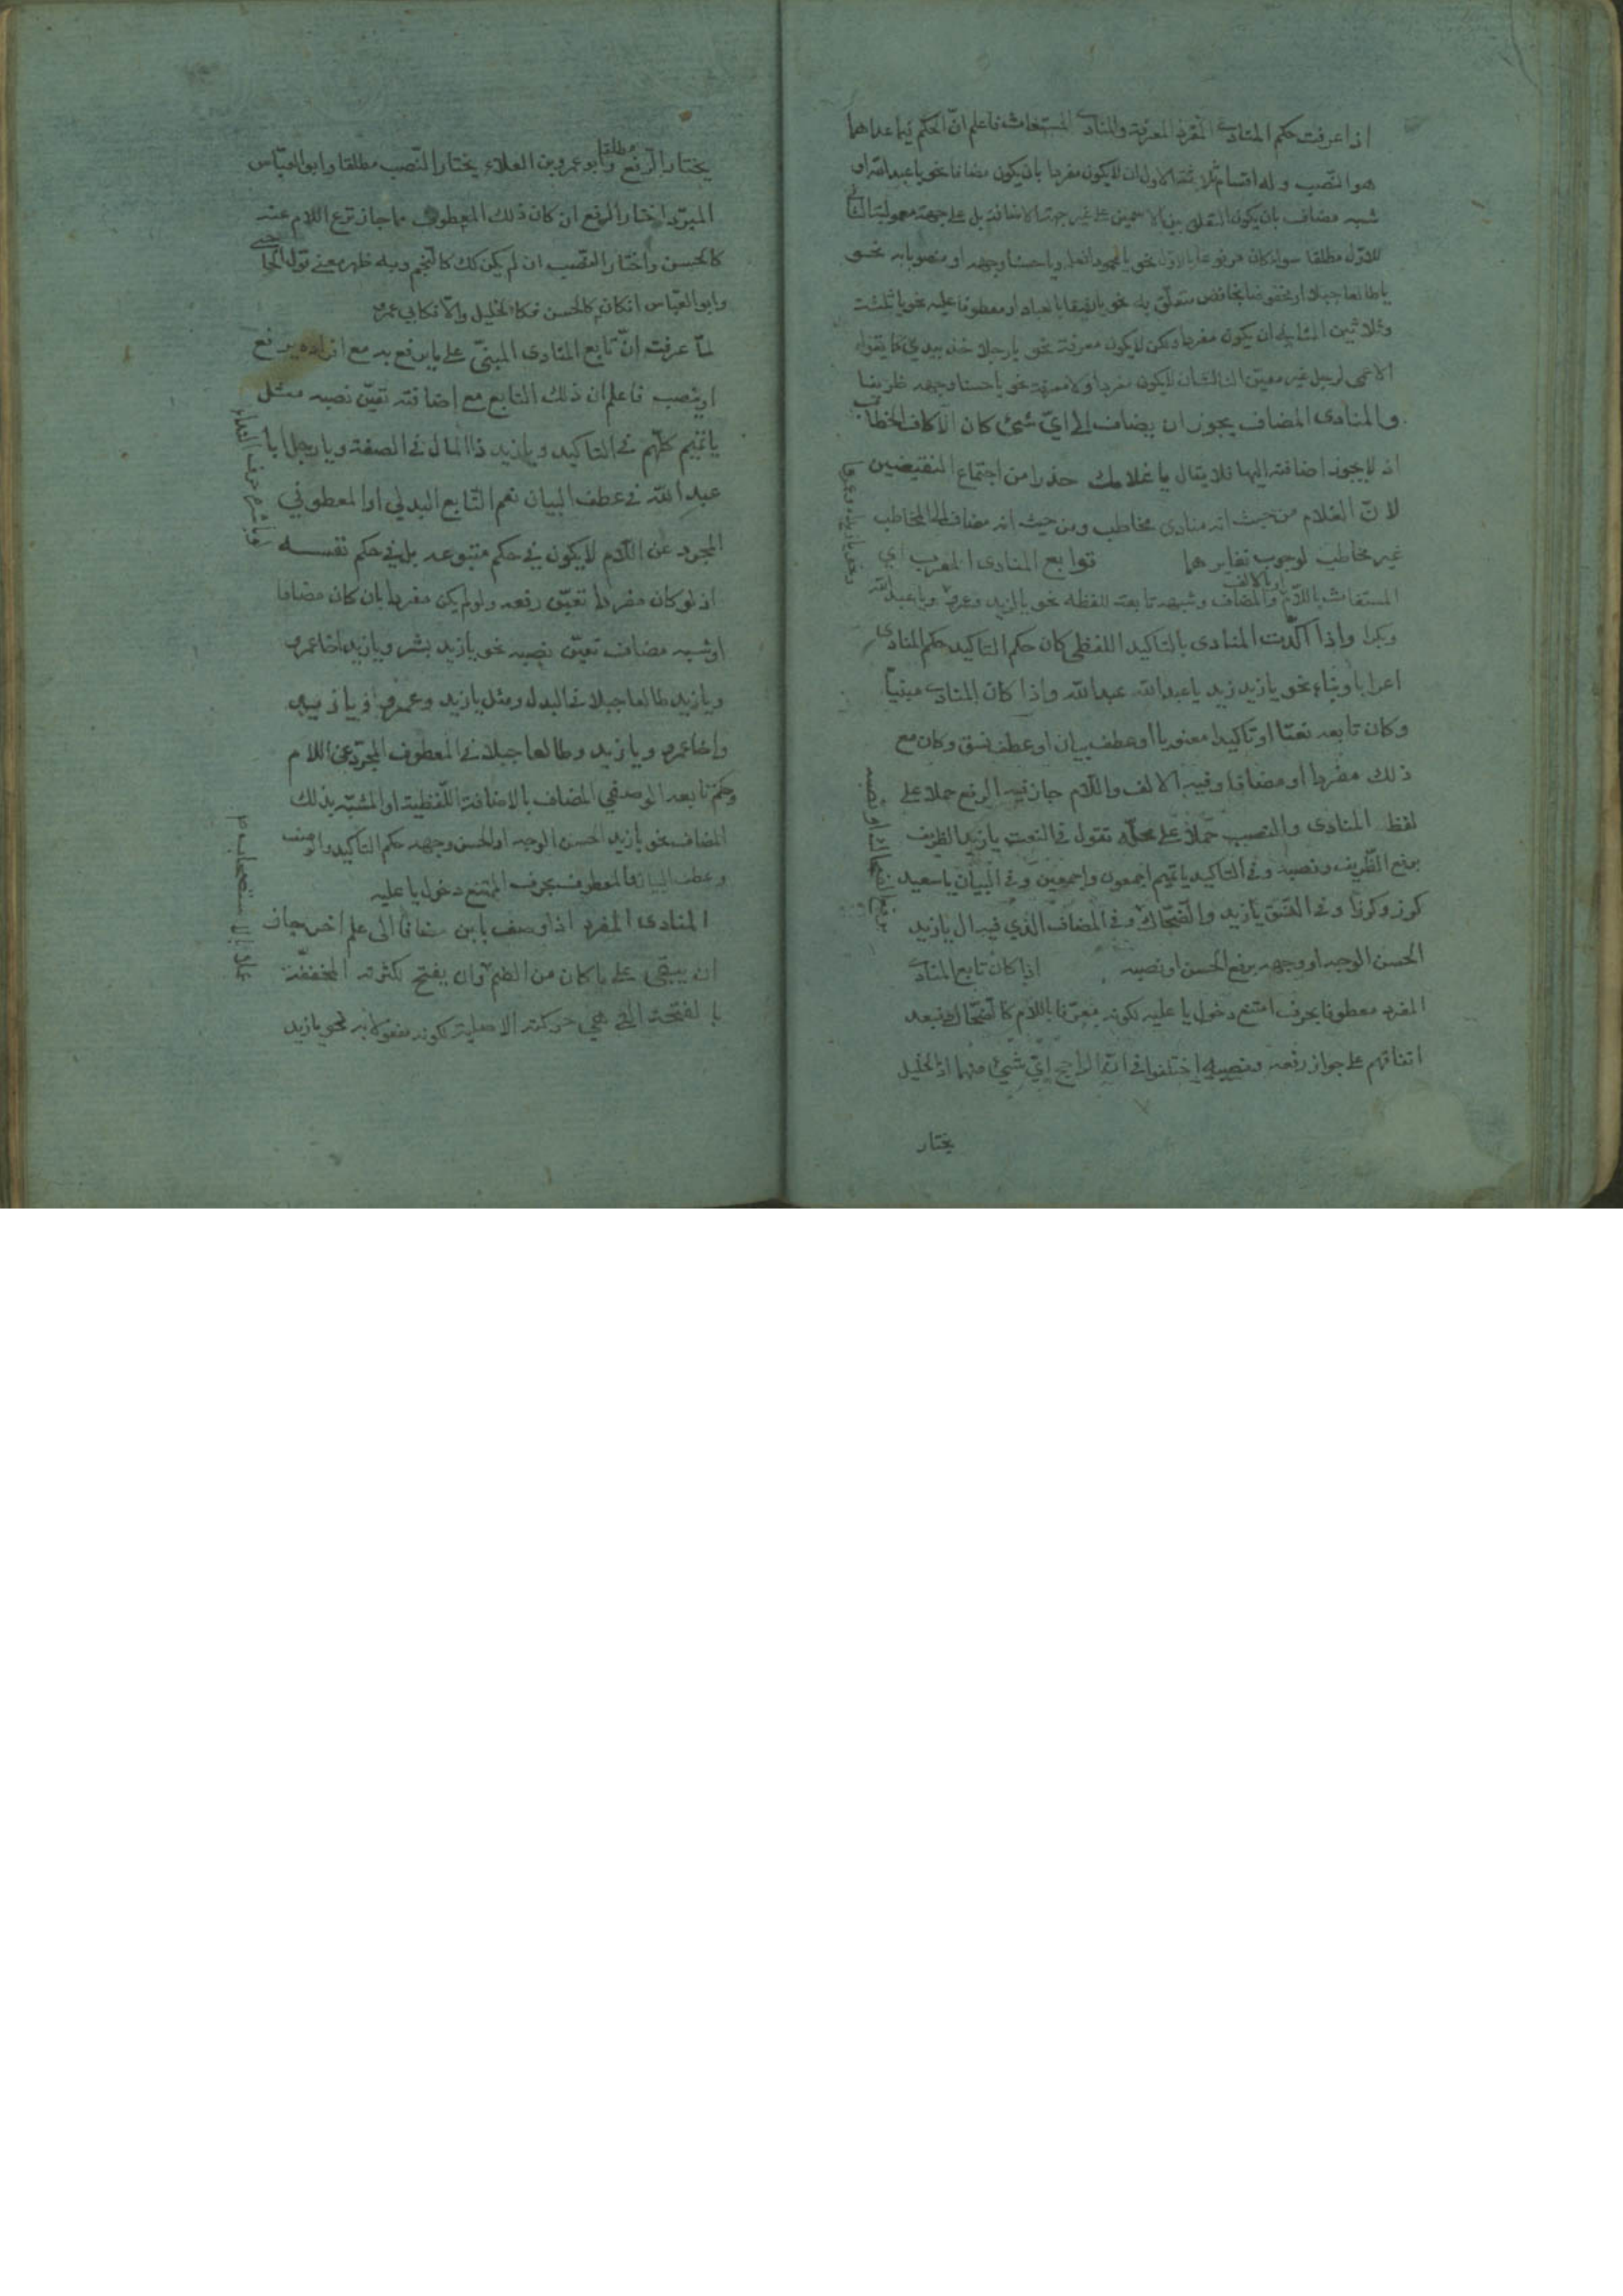 اذا عرفت حكم المنادى المفرد المعرفة والمنادى المستغاث فاعلم ان الحكم فيما عداهما
هو النصب وله اقسام ثلاثة الاول ان لا يكون مفردا بان يكون مضافا نحو يا عبد الله او
شبه مضاف بان يكون التعلق بين الاسمين على غير جهة الاضافة بل على جهة معمولية الثاني
للاول مطلقا سواء كان مرفوعا بالاول نحو يا محمودا فعله ويا حسنا وجهه او منصوبا به نحو
يا طالعا جبلا او مخفوضا بخافض متعلق به نحو يا رفيقا بالعباد او معطوفا عليه نحو يا ثلثة
وثلاثين الثاني ان يكون مفردا ولكن لا يكون معرفة نحو يا رجلا خذ بيدي كما يقوله
الاعمى لرجل غير معين الثالث ان لا يكون مفردا ولا معرفة نحو يا حسنا وجهه ظريفا
والمنادى المضاف يجوز ان يضاف الى اي شئ كان الا كاف الخطاب
اذ لا يجوز اضافته اليها فلا يقال يا غلامك حذرا من اجتماع النقيضين
لان الغلام من حيث انه منادى مخاطب ومن حيث انه مضاف الى المخاطب
غير مخاطب لوجوب تغايرهما توابع المنادى المعرب اي
المستغاث باللام او بالالف والمضاف وشبهه تابعة للفظه نحو يا لزيد وعمرو ويا عبد الله
وبكرا واذا اكدت المنادى بالتاكيد اللفظي كان حكم التاكيد حكم المنادى
اعرابا وبناء نحو يا زيد زيد يا عبد الله عبد الله واذا كان المنادى مبنيا
وكان تابعه نعتا او تاكيدا معنويا او عطف بيان او عطف نسق وكان مع
ذلك مفردا او مضافا وفيه الالف واللام جاز فيه الرفع حملا على
لفظ المنادى والنصب حملا على محله تقول في النعت يا زيد الظريف
برفع الظريف ونصبه وفي التاكيد يا تميم اجمعون واجمعين وفي البيان يا سعيد
كرز وكرزا وفي النسق يا زيد والضحاك وفي المضاف الذي فيه ال يا زيد
برفع الضحاك او نصبه
الحسن الوجه او وجهه برفع الحسن او نصبه اذا كان تابع المنادى
المفرد معطوفا بحرف امتنع دخول يا عليه لكونه معرفا باللام كالضحاك فبعد
اتفاقهم على جواز رفعه ونصبه اختلفوا في ان الراجح اي شئ منهما اذ الخليل
يختار
يختار الرفع مطلقا وابو عمرو بن العلاء يختار النصب مطلقا وابو العباس
المبرد اختار الرفع ان كان ذلك المعطوف مما جاز نزع اللام عنه
كالحسن واختار النصب ان لم يكن كك كالنجم وبه ظهر معنى قول الحاجبي
وابو العباس ان كان كالحسن فكالخليل والا فكابي عمرو
لما عرفت ان تابع المنادى المبني على ما يرفع به مع افراده يرفع
او ينصب فاعلم ان ذلك التابع مع اضافته تعين نصبه مثل
يا تميم كلهم في التاكيد ويا زيد ذا المال في الصفة ويا رجل ابا
عبد الله في عطف البيان نعم التابع البدلي او المعطوفي
المجرد عن اللام لا يكون في حكم متبوعه بل في حكم نفسه
اذ لو كان مفردا تعين رفعه ولو لم يكن مفردا بان كان مضافا
او شبه مضاف تعين نصبه نحو يا زيد بشر ويا زيد اخا عمرو
ويا زيد طالعا جبلا في البدل ومثل يا زيد وعمرو ويا زيد
واخا عمرو ويا زيد وطالعا جبلا في المعطوف المجرد عن اللام
وحكم تابعه الوصفي المضاف بالاضافة اللفظية او المشبه بذلك
المضاف نحو يا زيد الحسن الوجه او الحسن وجهه حكم التاكيد والوصف
وعطف البيان والمعطوف بحرف الممتنع دخول يا عليه
المنادى المفرد اذا وصف بابن مضافا الى علم اخر جاز
ان يبقى على ما كان من الضم وان يفتح لكثرته المخففة
بالفتحة التي هي حركته الاصلية لكونه مفعولا به نحو يا زيد